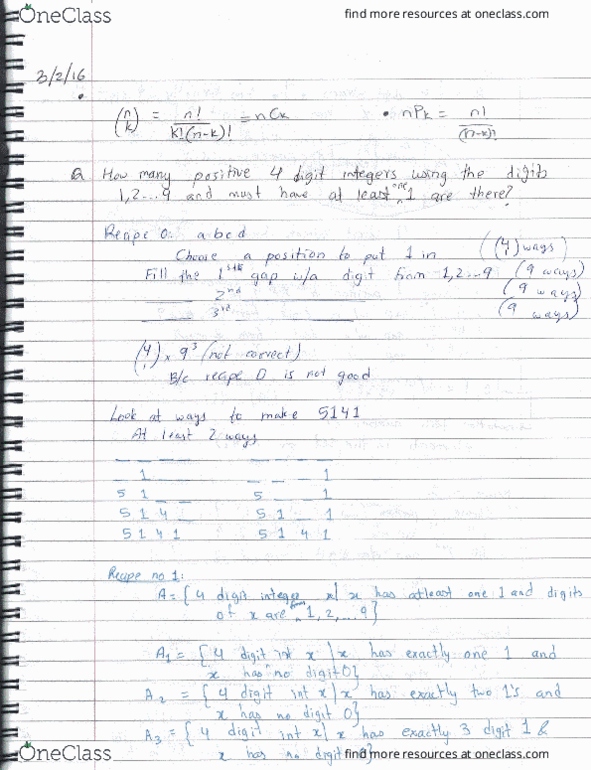 OneClass
find more resources at oneclass.com
3/2/16
(n k) = n! / k!(n-k)! = nCk • nPk = n! / (n-k)!
Q How many positive 4 digit integers using the digits
1,2...9 and must have at least one 1 are there?
Recipe 0: a b c d
Choose a position to put 1 in ((4 1) ways)
Fill the 1st gap w/a digit from 1,2...9 (9 ways)
2nd (9 ways)
3rd (9 ways)
(4 1) x 9³ (not correct)
B/c recipe 0 is not good
Look at ways to make 5141
At least 2 ways
_ _ _ _ _ _ _ _
_ 1 _ _ _ _ _ 1
5 1 _ _ 5 _ _ 1
5 1 4 _ 5 1 _ 1
5 1 4 1 5 1 4 1
Recipe no 1:
A = { 4 digit integer x | x has atleast one 1 and digits
of x are from 1,2,...9}
A₁ = { 4 digit int x | x has exactly one 1 and
x has no digit 0}
A₂ = { 4 digit int x | x has exactly two 1's and
x has no digit 0}
A₃ = { 4 digit int x | x has exactly 3 digit 1 &
x has no digit 0}
OneClass
find more resources at oneclass.com